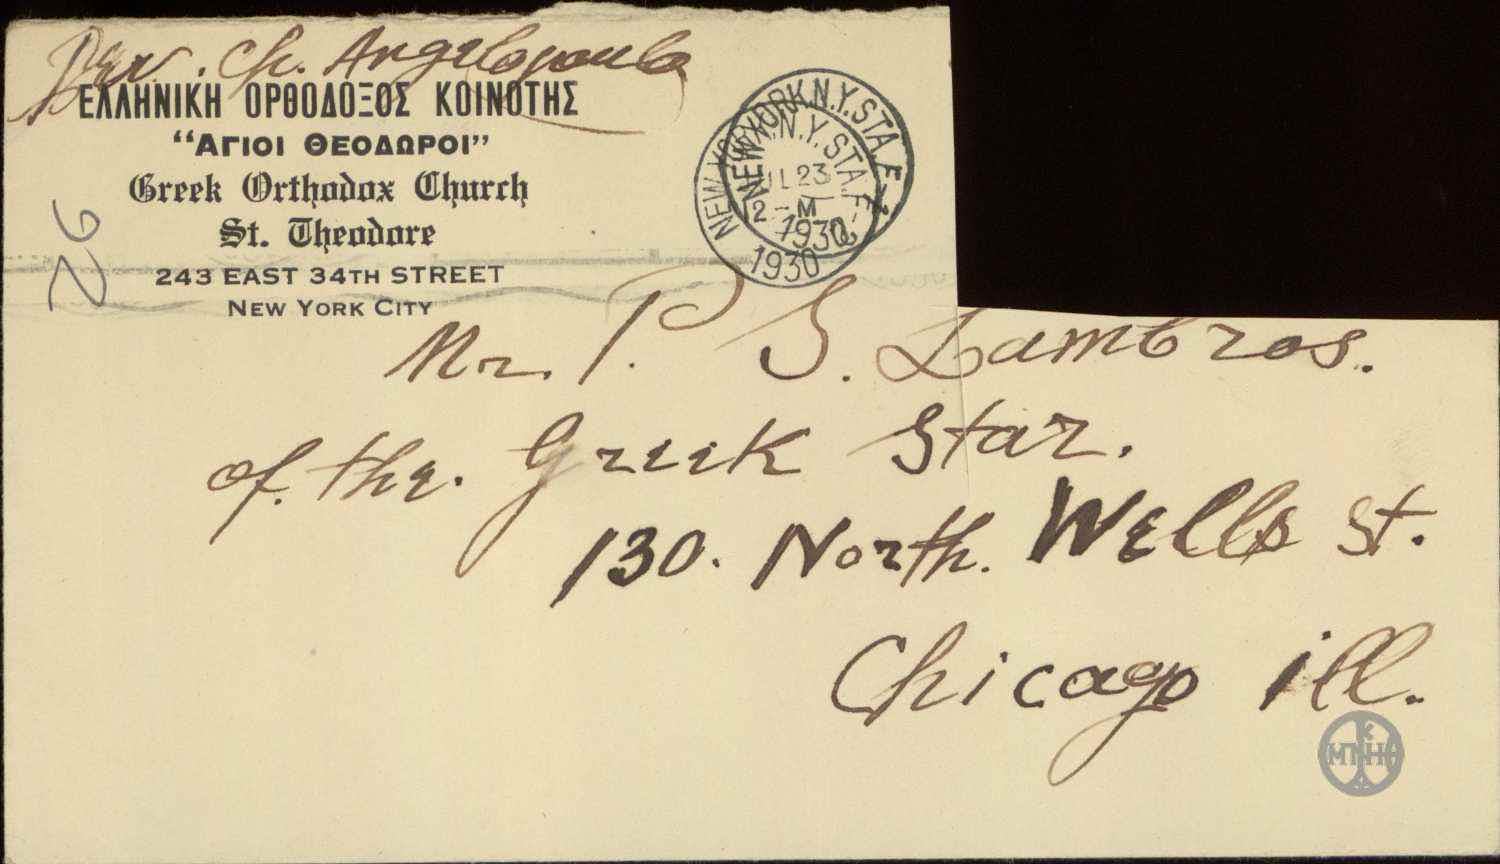 Rev. Ch. Angelopoulo
ΕΛΛΗΝΙΚΗ ΟΡΘΟΔΟΞΟΣ ΚΟΙΝΟΤΗΣ
“ΑΓΙΟΙ ΘΕΟΔΩΡΟΙ”
Greek Orthodox Church
St. Theodore
243 EAST 34TH STREET
NEW YORK CITY
26
NEW YORK, N.Y. STA. F.
NEW YORK, N.Y. STA. F.
JUL 23
2 - M
1930
1930
Mr. P. S. Lambros.
of. the. Greek Star.
130. North. Wells St.
Chicago ill.
ΜΝΗΜ